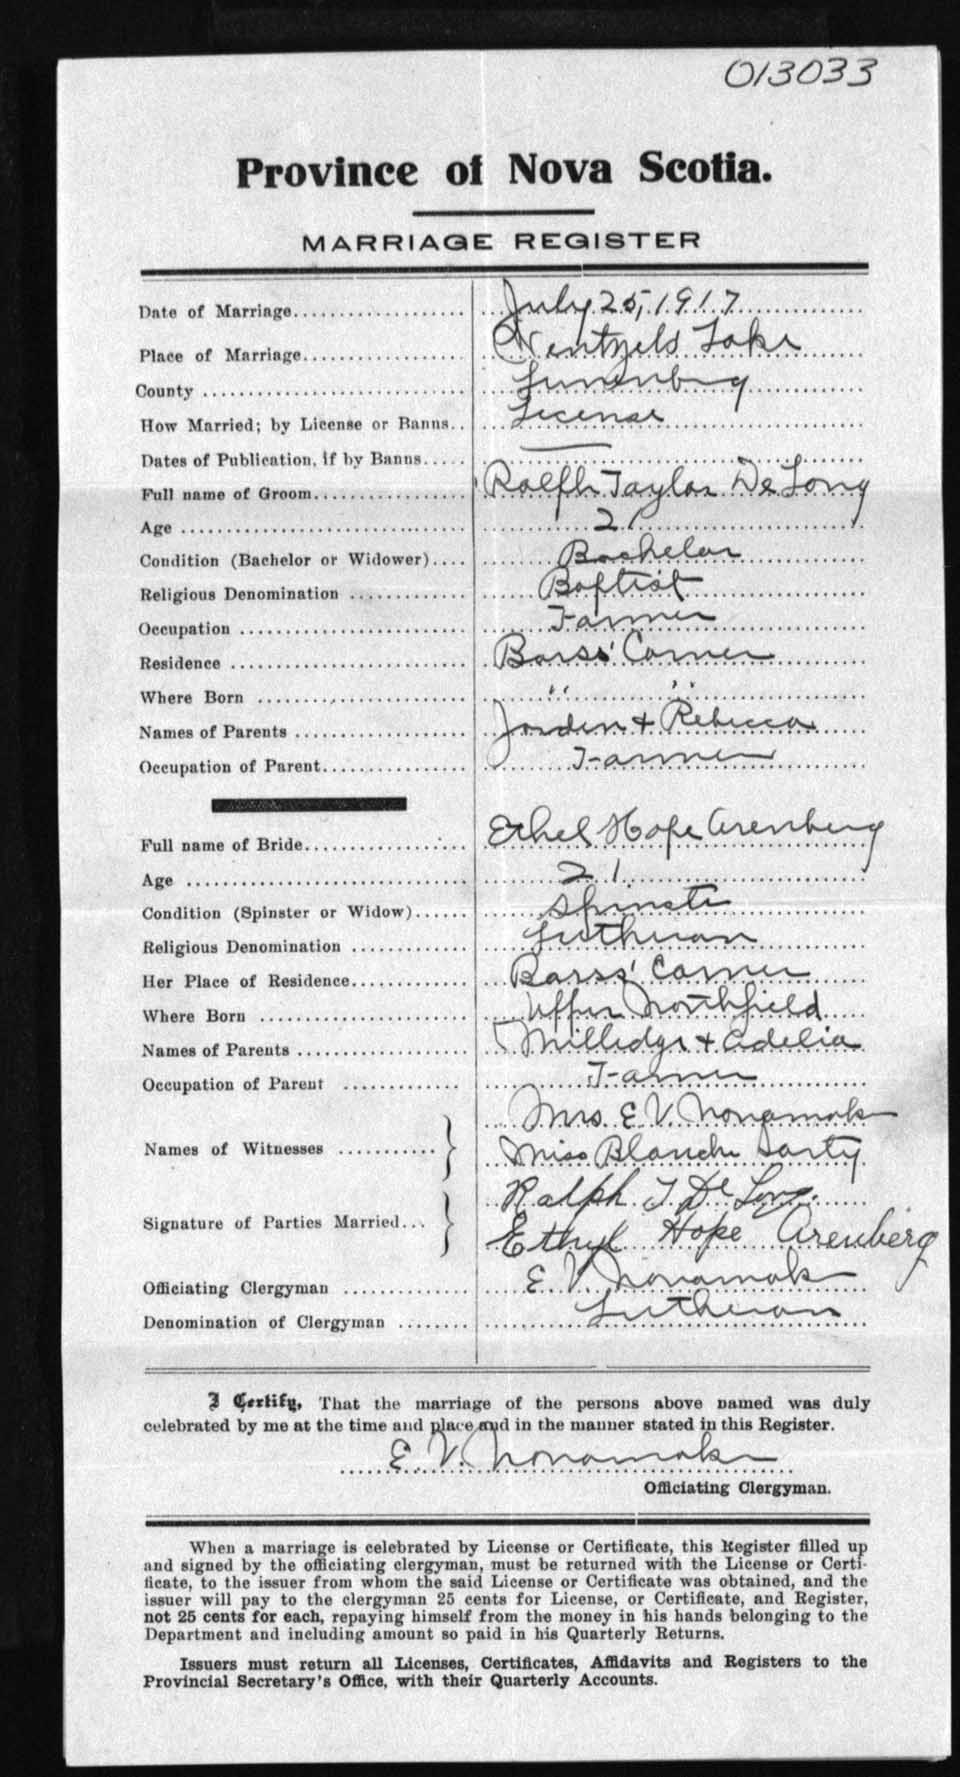 013033
Province of Nova Scotia.
MARRIAGE REGISTER
Date of Marriage July 25, 1917
Place of Marriage Wentzels Lake
County Lunenburg
How Married; by License or Banns License
Dates of Publication, if by Banns —
Full name of Groom Ralph Taylor DeLong
Age 21
Condition (Bachelor or Widower) Bachelor
Religious Denomination Baptist
Occupation Farmer
Residence Barss' Corner
Where Born " "
Names of Parents Jorden + Rebecca
Occupation of Parent Farmer
Full name of Bride Ethel Hope Arenberg
Age 21
Condition (Spinster or Widow) Spinster
Religious Denomination Lutheran
Her Place of Residence Barss' Corner
Where Born Upper Northfield
Names of Parents Milledge + Adelia
Occupation of Parent Farmer
Mrs. E. V. Nonamaker
Names of Witnesses
Miss Blanche Sarty
Ralph T. DeLong.
Signature of Parties Married
Ethyl Hope Arenberg
Officiating Clergyman E. V. Nonamaker
Denomination of Clergyman Lutheran
I Certify, That the marriage of the persons above named was duly
celebrated by me at the time and place and in the manner stated in this Register.
E. V. Nonamaker
Officiating Clergyman.
When a marriage is celebrated by License or Certificate, this Register filled up
and signed by the officiating clergyman, must be returned with the License or Certi-
ficate, to the issuer from whom the said License or Certificate was obtained, and the
issuer will pay to the clergyman 25 cents for License, or Certificate, and Register,
not 25 cents for each, repaying himself from the money in his hands belonging to the
Department and including amount so paid in his Quarterly Returns.
Issuers must return all Licenses, Certificates, Affidavits and Registers to the
Provincial Secretary's Office, with their Quarterly Accounts.